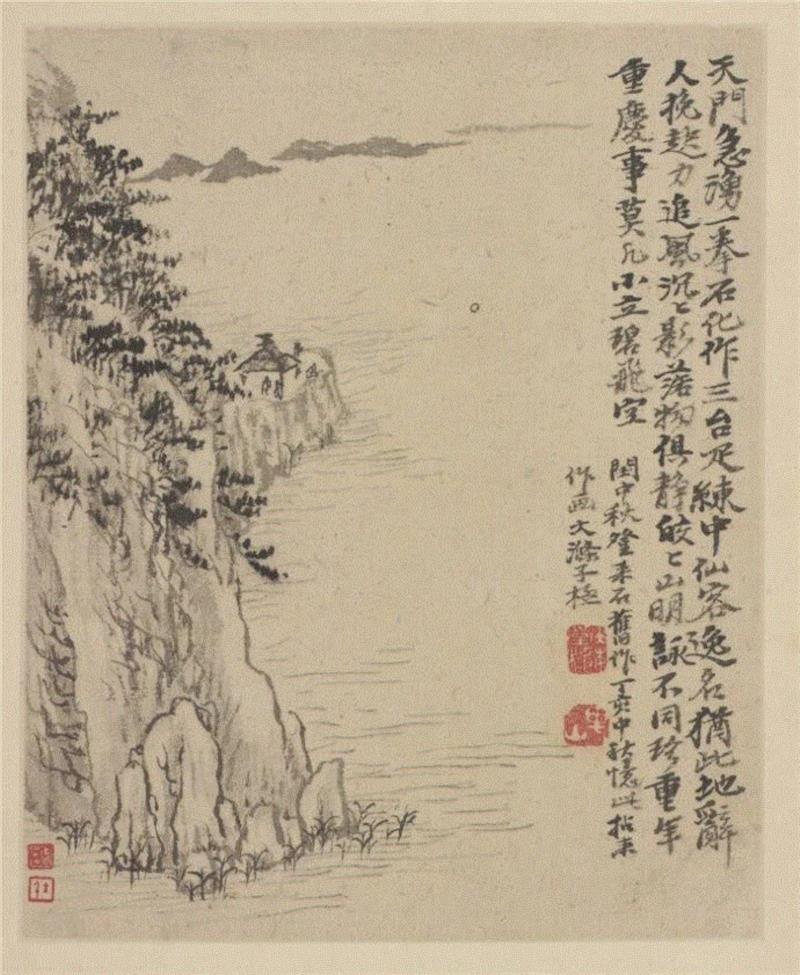 天門急湧一拳石化作三台疋練中仙客逸名猶此地辭
人挽趁力追風沉〻影落物俱靜皎〻山明詠不同珍重年
重慶事莫凡小立碧飛空
閏中秋登采石舊作丁亥中秋憶此拈來
作画大滌子極